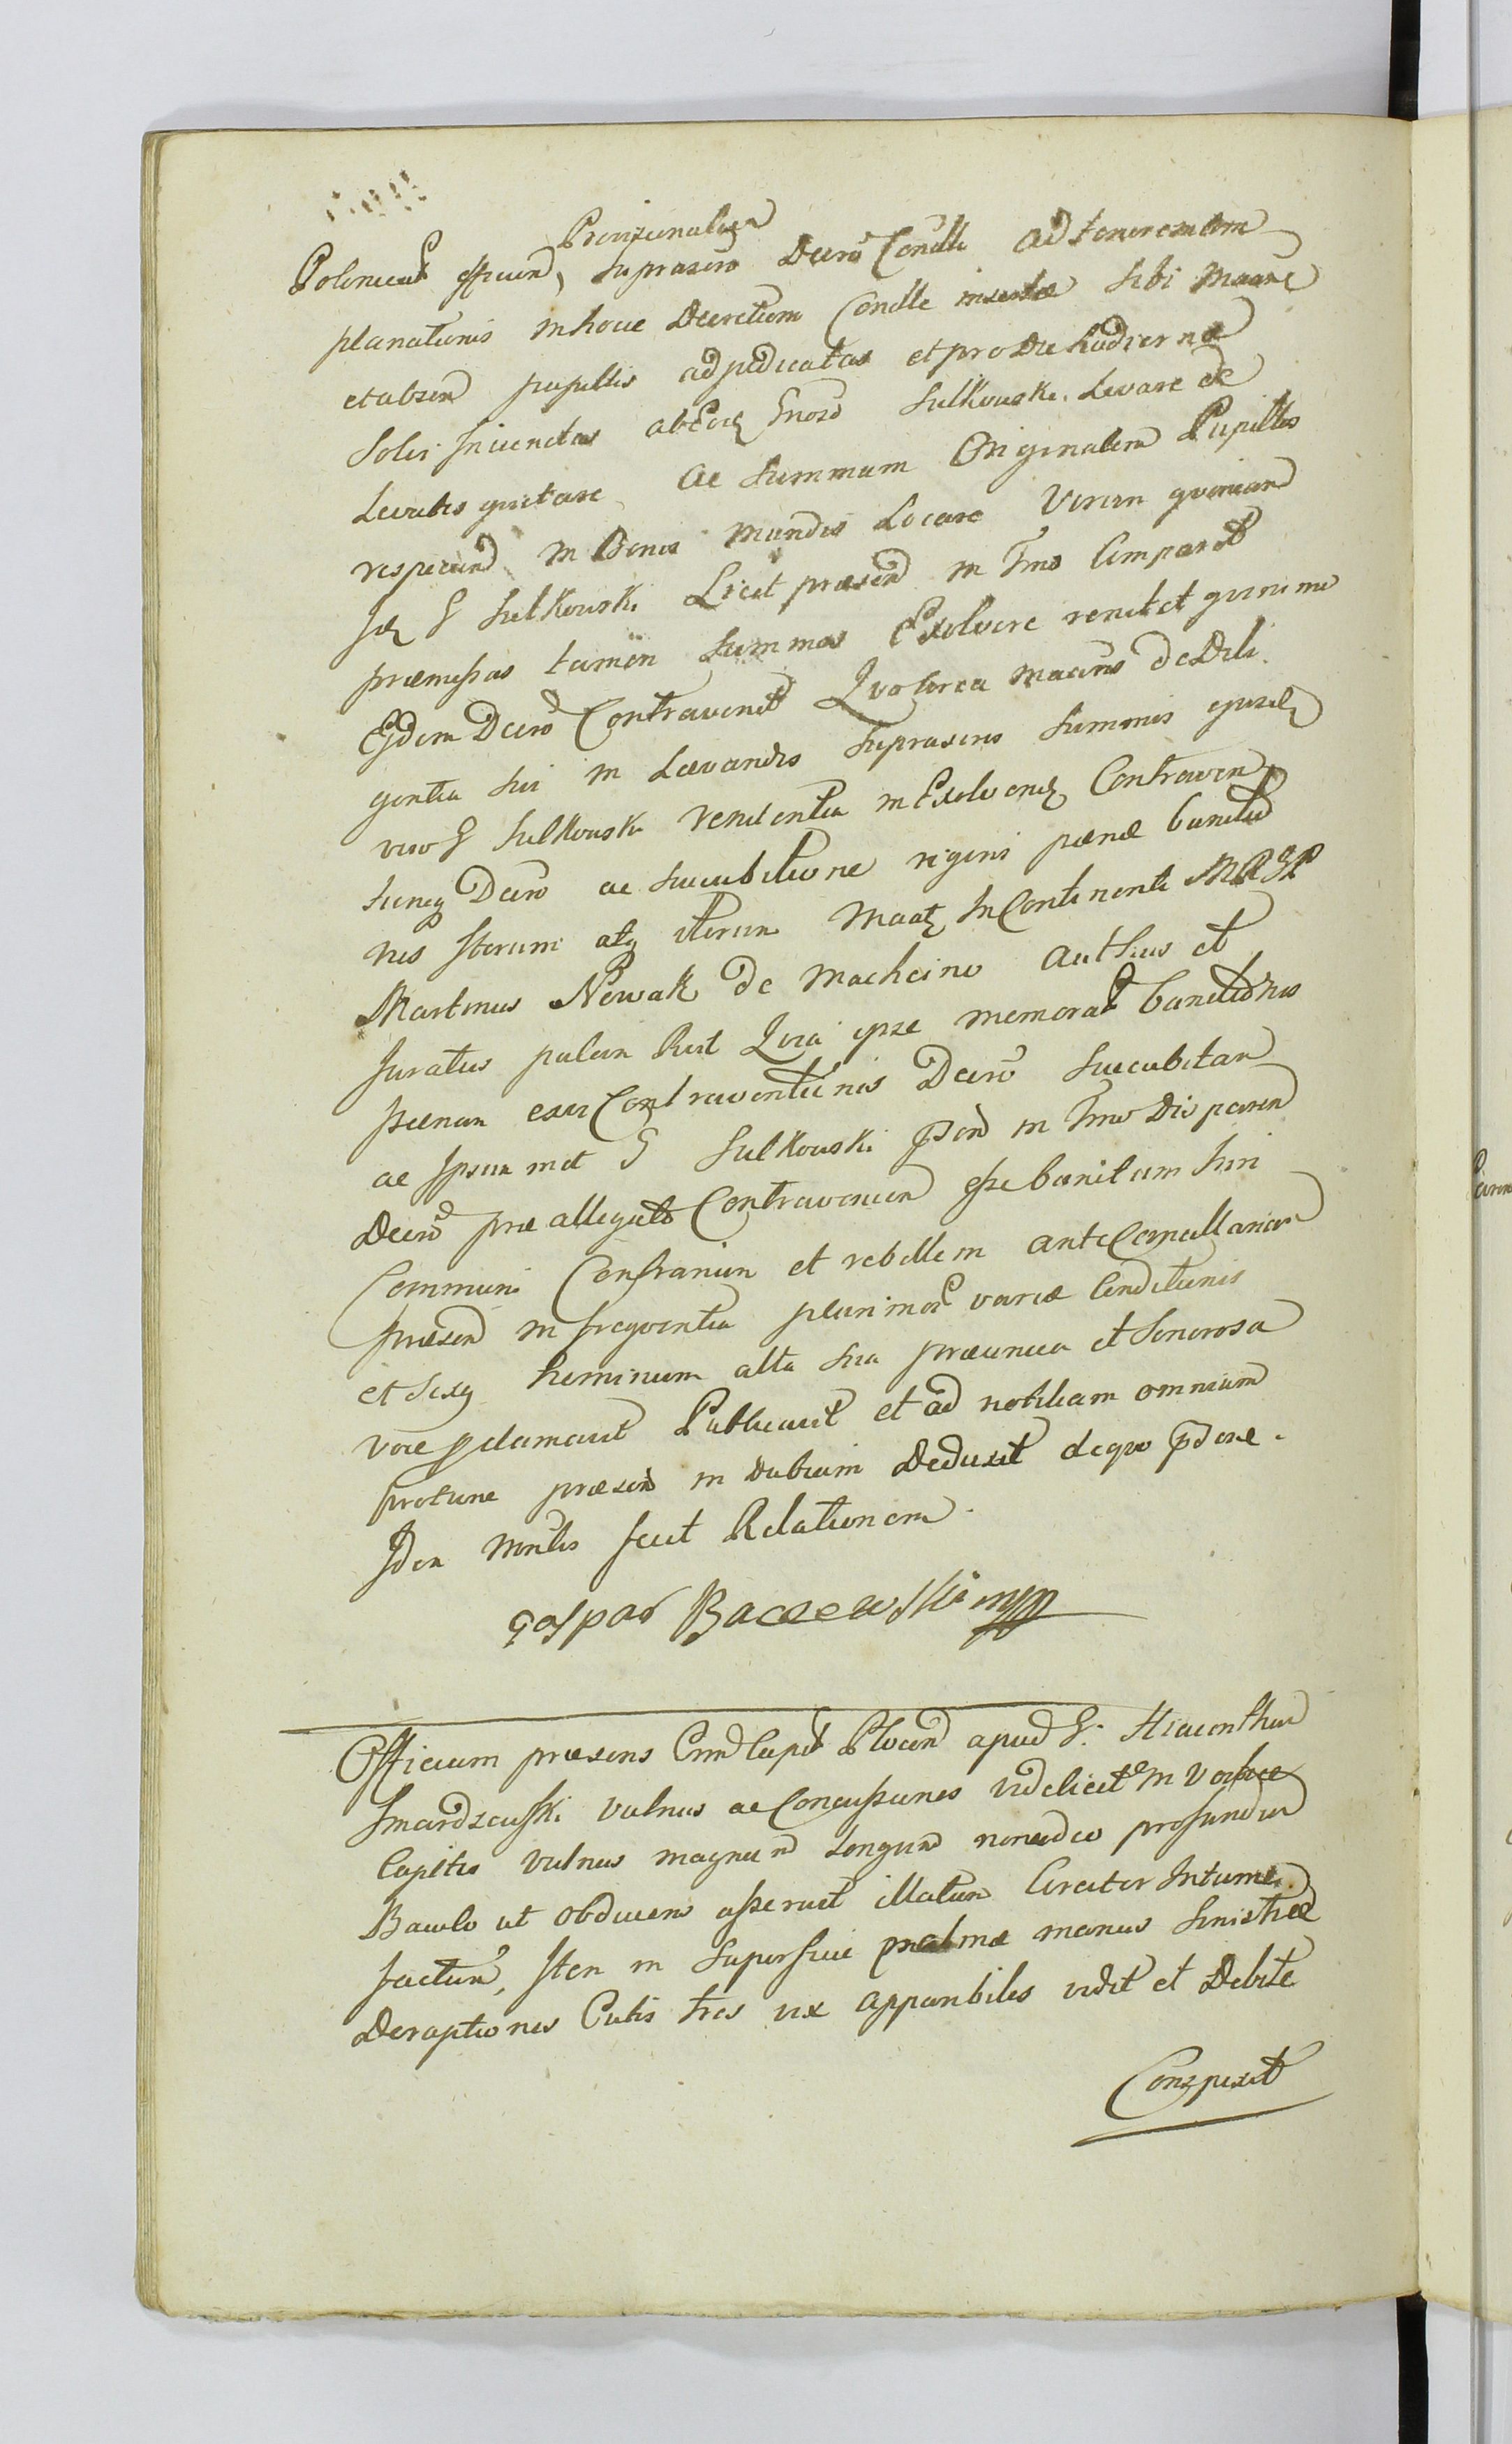 Provisionaliter
Polonical efficien, suprascrip Decrō Condli ad tenorem com
planationis in hocce Decretum Condle insertæ sibi Maare
et absen pupillis adjudicatas et pro Die hodierna
Solvi Injunctas ab Eodq Gnoso Sulkowski Levare de
Levatis quietare ac Summam Originalem Pupillis
respicien in Bonis Mundis Locare Verum quoniam
Idq G Sulkowski Licet præsen in Tmo Comparet
præmissas tamen Summas Exolvere renitet et quinimo
Ejdem Decrō Contravenit Quo circa Maans de Dili
gentia sui in Levandis Suprascris Summis ejusdq
vero G Sulkowski renitentia in Exolvendq Contraven
tioneq Decrō ac succubitione rigoris pænæ banitio
nis Iterum atq iterum Maatq In Continenti MRGR
Martinus Nowak de Machcino Authens et
Juratus palam Rust Quia ipse memorat banitionis
pænam erar Contraventionis Decrō Succubitam
ac Ipsummet G Sulkowski pden in Tmo Disparen
Decrō præallegato Contravenien esse banitum hui
Communi Contrarium et rebellem ante Cancellariam
præsen in frequentia plurimor variæ Conditionis
et Sexq hominum alta sua præconica et Sonorosa
voce pclamavit Publicavit et ad notitiam omnium
protunc præsen in dubium Deduxit de quo pdone
Idem Mnlis fecit Relationem.
Gaspar Baczewski mpp
Officium præsens Cnn Capit Plocen apud G. Hiacinthum
Smardzewski vulnus ac Concussiones videlicet in Vertice
Capitis vulnus magnum Longum non adeo profundum
Baculo ut obducens asseruit illatum Circiter Intume
factum, Item in Superficie palmæ manus sinistræ
Deraptiones Cutis tres vix apparibiles vidit et Debite
Conspexit